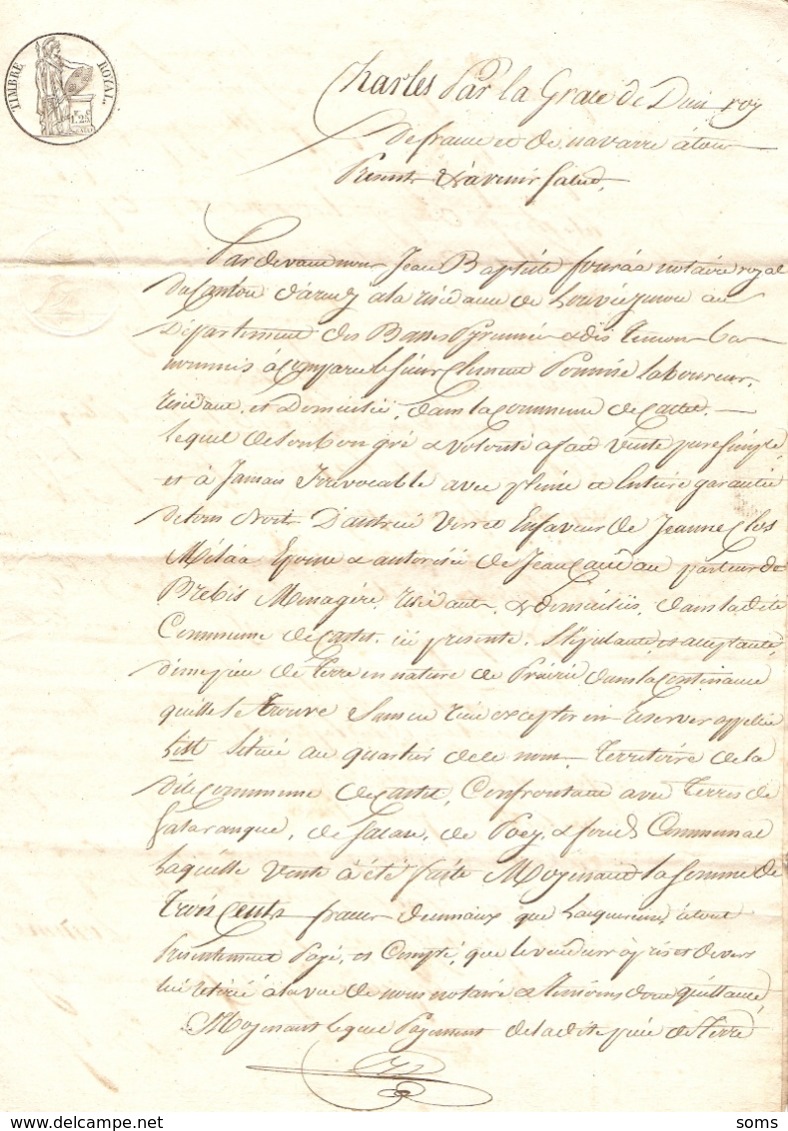 TIMBRE ROYAL
1.25
Charles Par la Grace de Dieu roy
de france et de navarre à tous
Présents & à avenir Salut,
Par devant nous Jean Baptiste notaire royal
Du Canton d'arudy a la residance de Louvie au
Département des Basses Pyrennées & des Temoins bas
nommés à Comparu le Sieur Clement Pommé laboureur,
residant, et Domicilié, dans la commune de Castet. —
lequel de son bon gré & volonté a fait vente pure Simple
et à Jamais Irrevocable avec pleine & Entiere garantie
de tous droits D'autrui vers et En faveur de Jeanne Clos
Milaa Epouse & autorisée de Jean pasteur de
Brebis Menagère, residants & domiciliés, dans la dite
Commune de Castet, ici presente, Stipulante, et acceptante,
d'une piece de Terre en nature de Prairie dans la Continance
qu'elle se trouve Sans en rien excepter ni reserver appellée
List Située au quartier de ce nom, Territoire de la
Dite commune de Castet, Confrontant avec Terres de
de de Poey, & fonds Communal
Laquelle vente à été faite Moyenant la Somme de
Trois Cents francs que à tout
Présentement Payé, et Compté, que le vendeur à pris et devers
lui retiré à la vue de nous notaire & temoins dont quittance,
Moyenant lequel Payement de la dite piece de Terre
soms